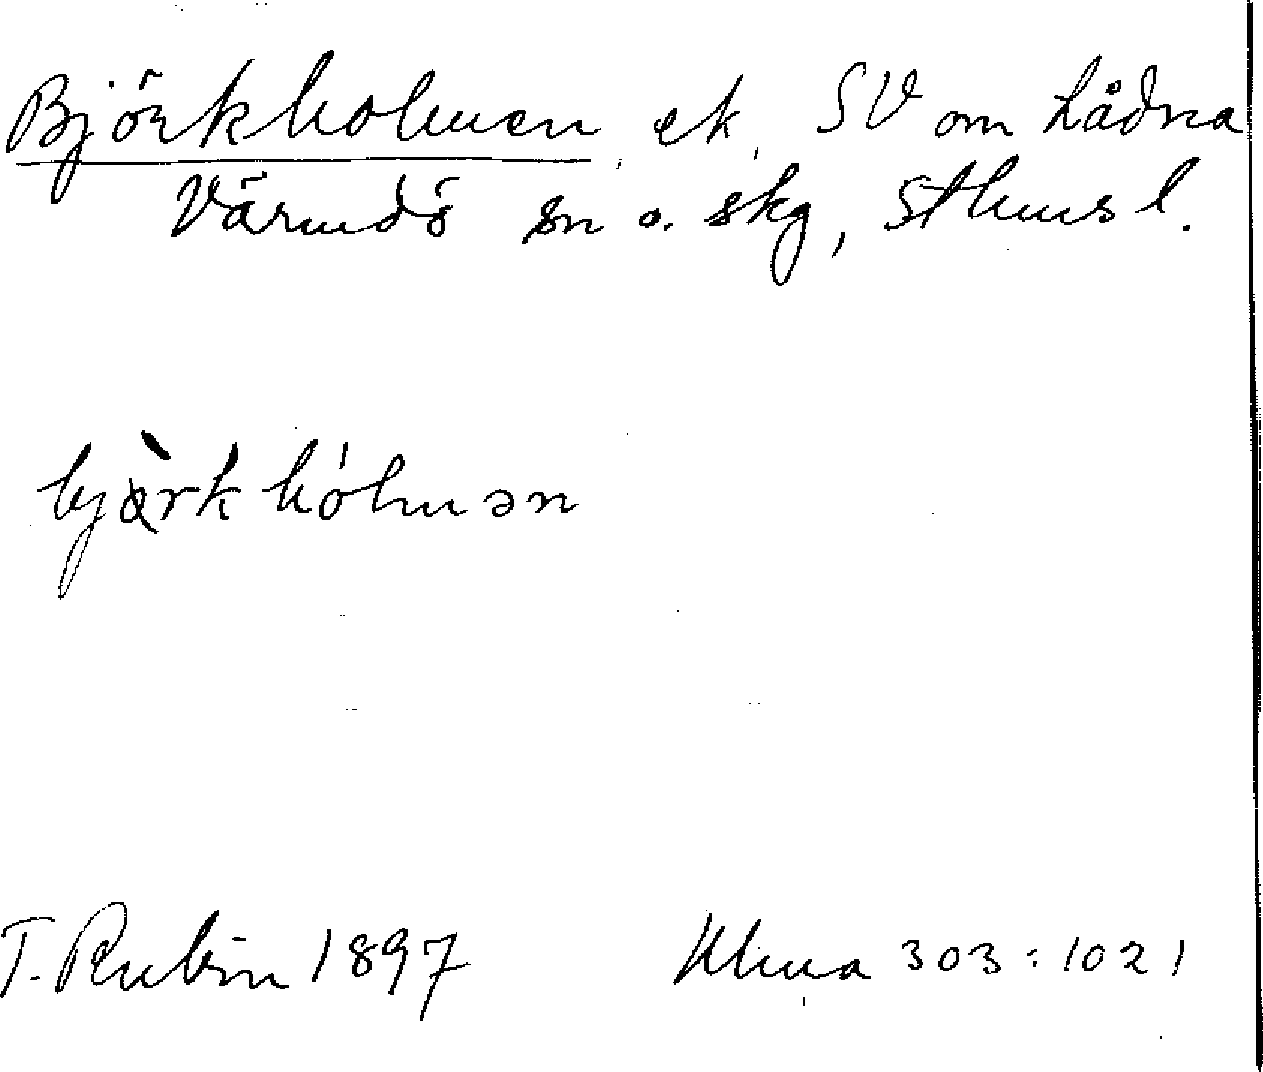 Björkholmen, ek, SV om Lådna
Värmdö sn o. skg, Sthms l.
bjɑ̀rkhólmən
T. Rubin 1897 Ulma 303:1021